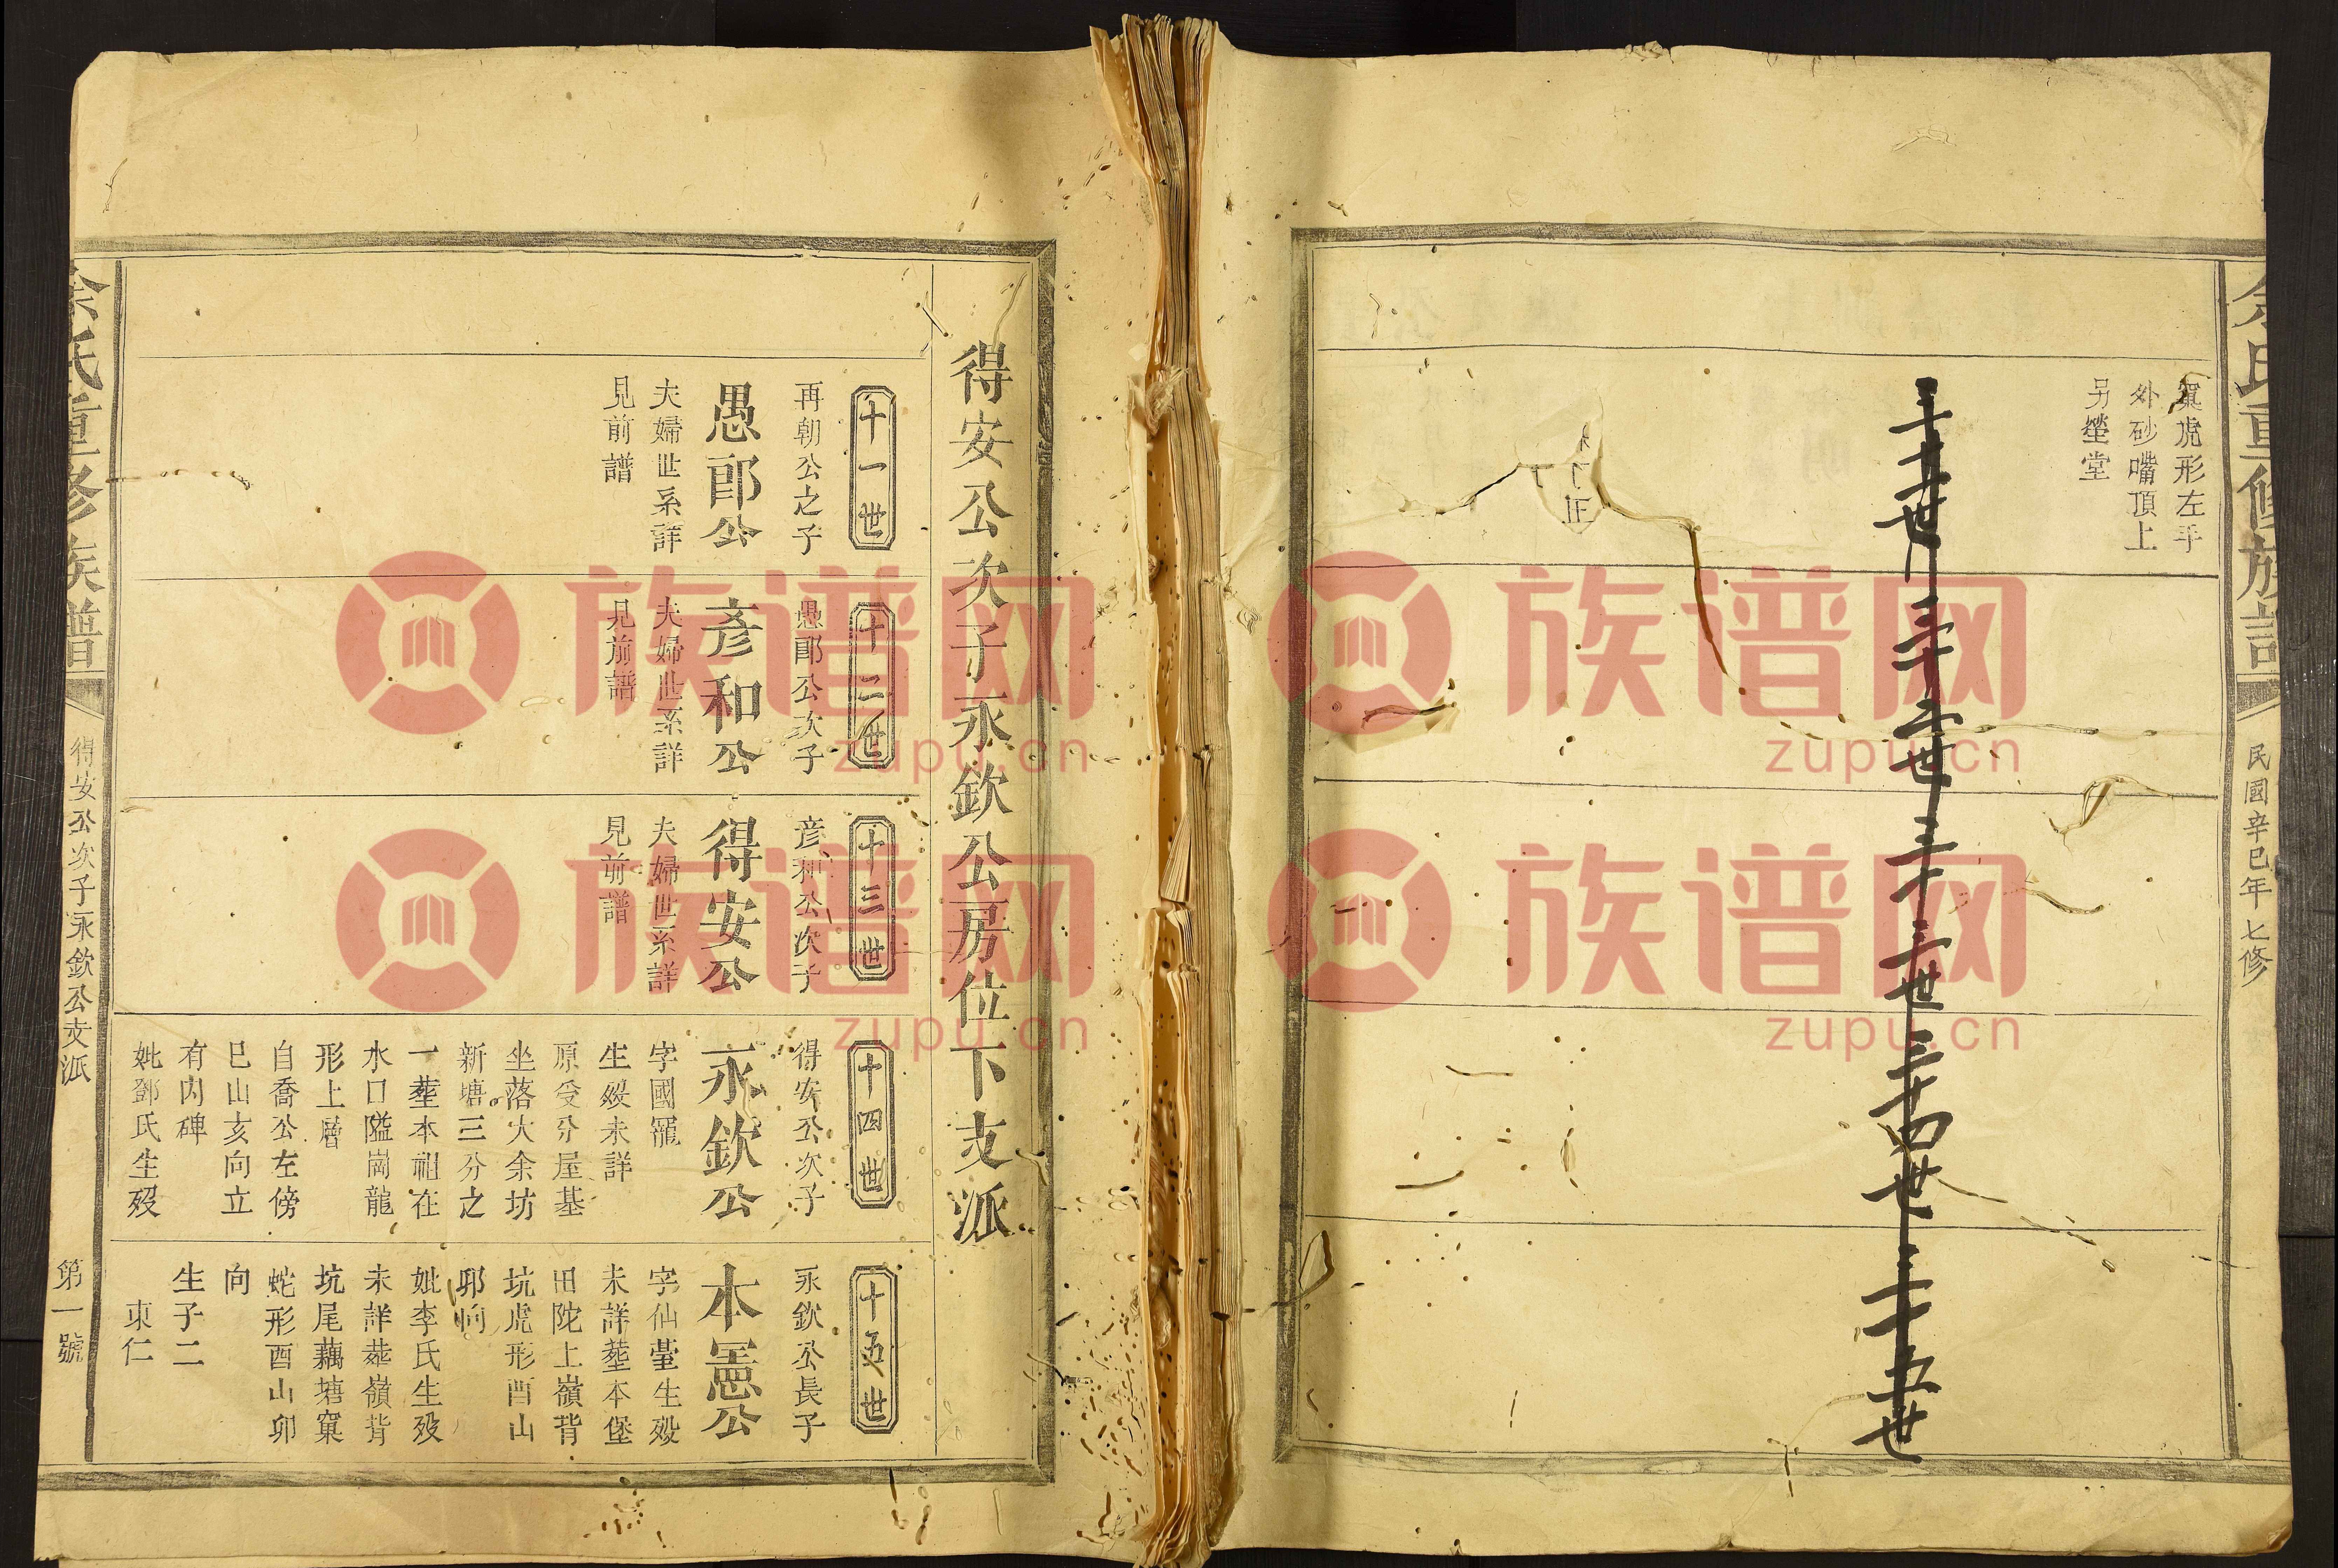 余氏重修族譜
民國辛巳年七修
窠虎形左手
外砂嘴頂上
另塋堂
三十一世
三十二世
三十三世
三十四世
三十五世
得安公次子永欽公房位下支派
十一世
再朝公之子
愚郎公
夫婦世系詳
見前譜
十二世
愚郎公次子
彥和公
夫婦世系詳
見前譜
十三世
彥和公次子
得安公
夫婦世系詳
見前譜
十四世
得安公次子
永欽公
字國寵
生歿未詳
原受分屋基
坐落大余坊
新塘三分之
一塟本祖在
水口隘崗龍
形上層
自喬公左傍
巳山亥向立
有內碑
妣鄧氏生歿
十五世
永欽公長子
本憲公
字仙臺生歿
未詳塟本堡
田陀上嶺背
坑虎形酉山
卯向
妣李氏生歿
未詳塟嶺背
坑尾藕塘窠
蛇形酉山卯
向
生子二
東仁
余氏重修族譜
得安公次子永欽公支派
第一號
族谱网
zupu.cn
族谱网
zupu.cn
族谱网
zupu.cn
族谱网
zupu.cn